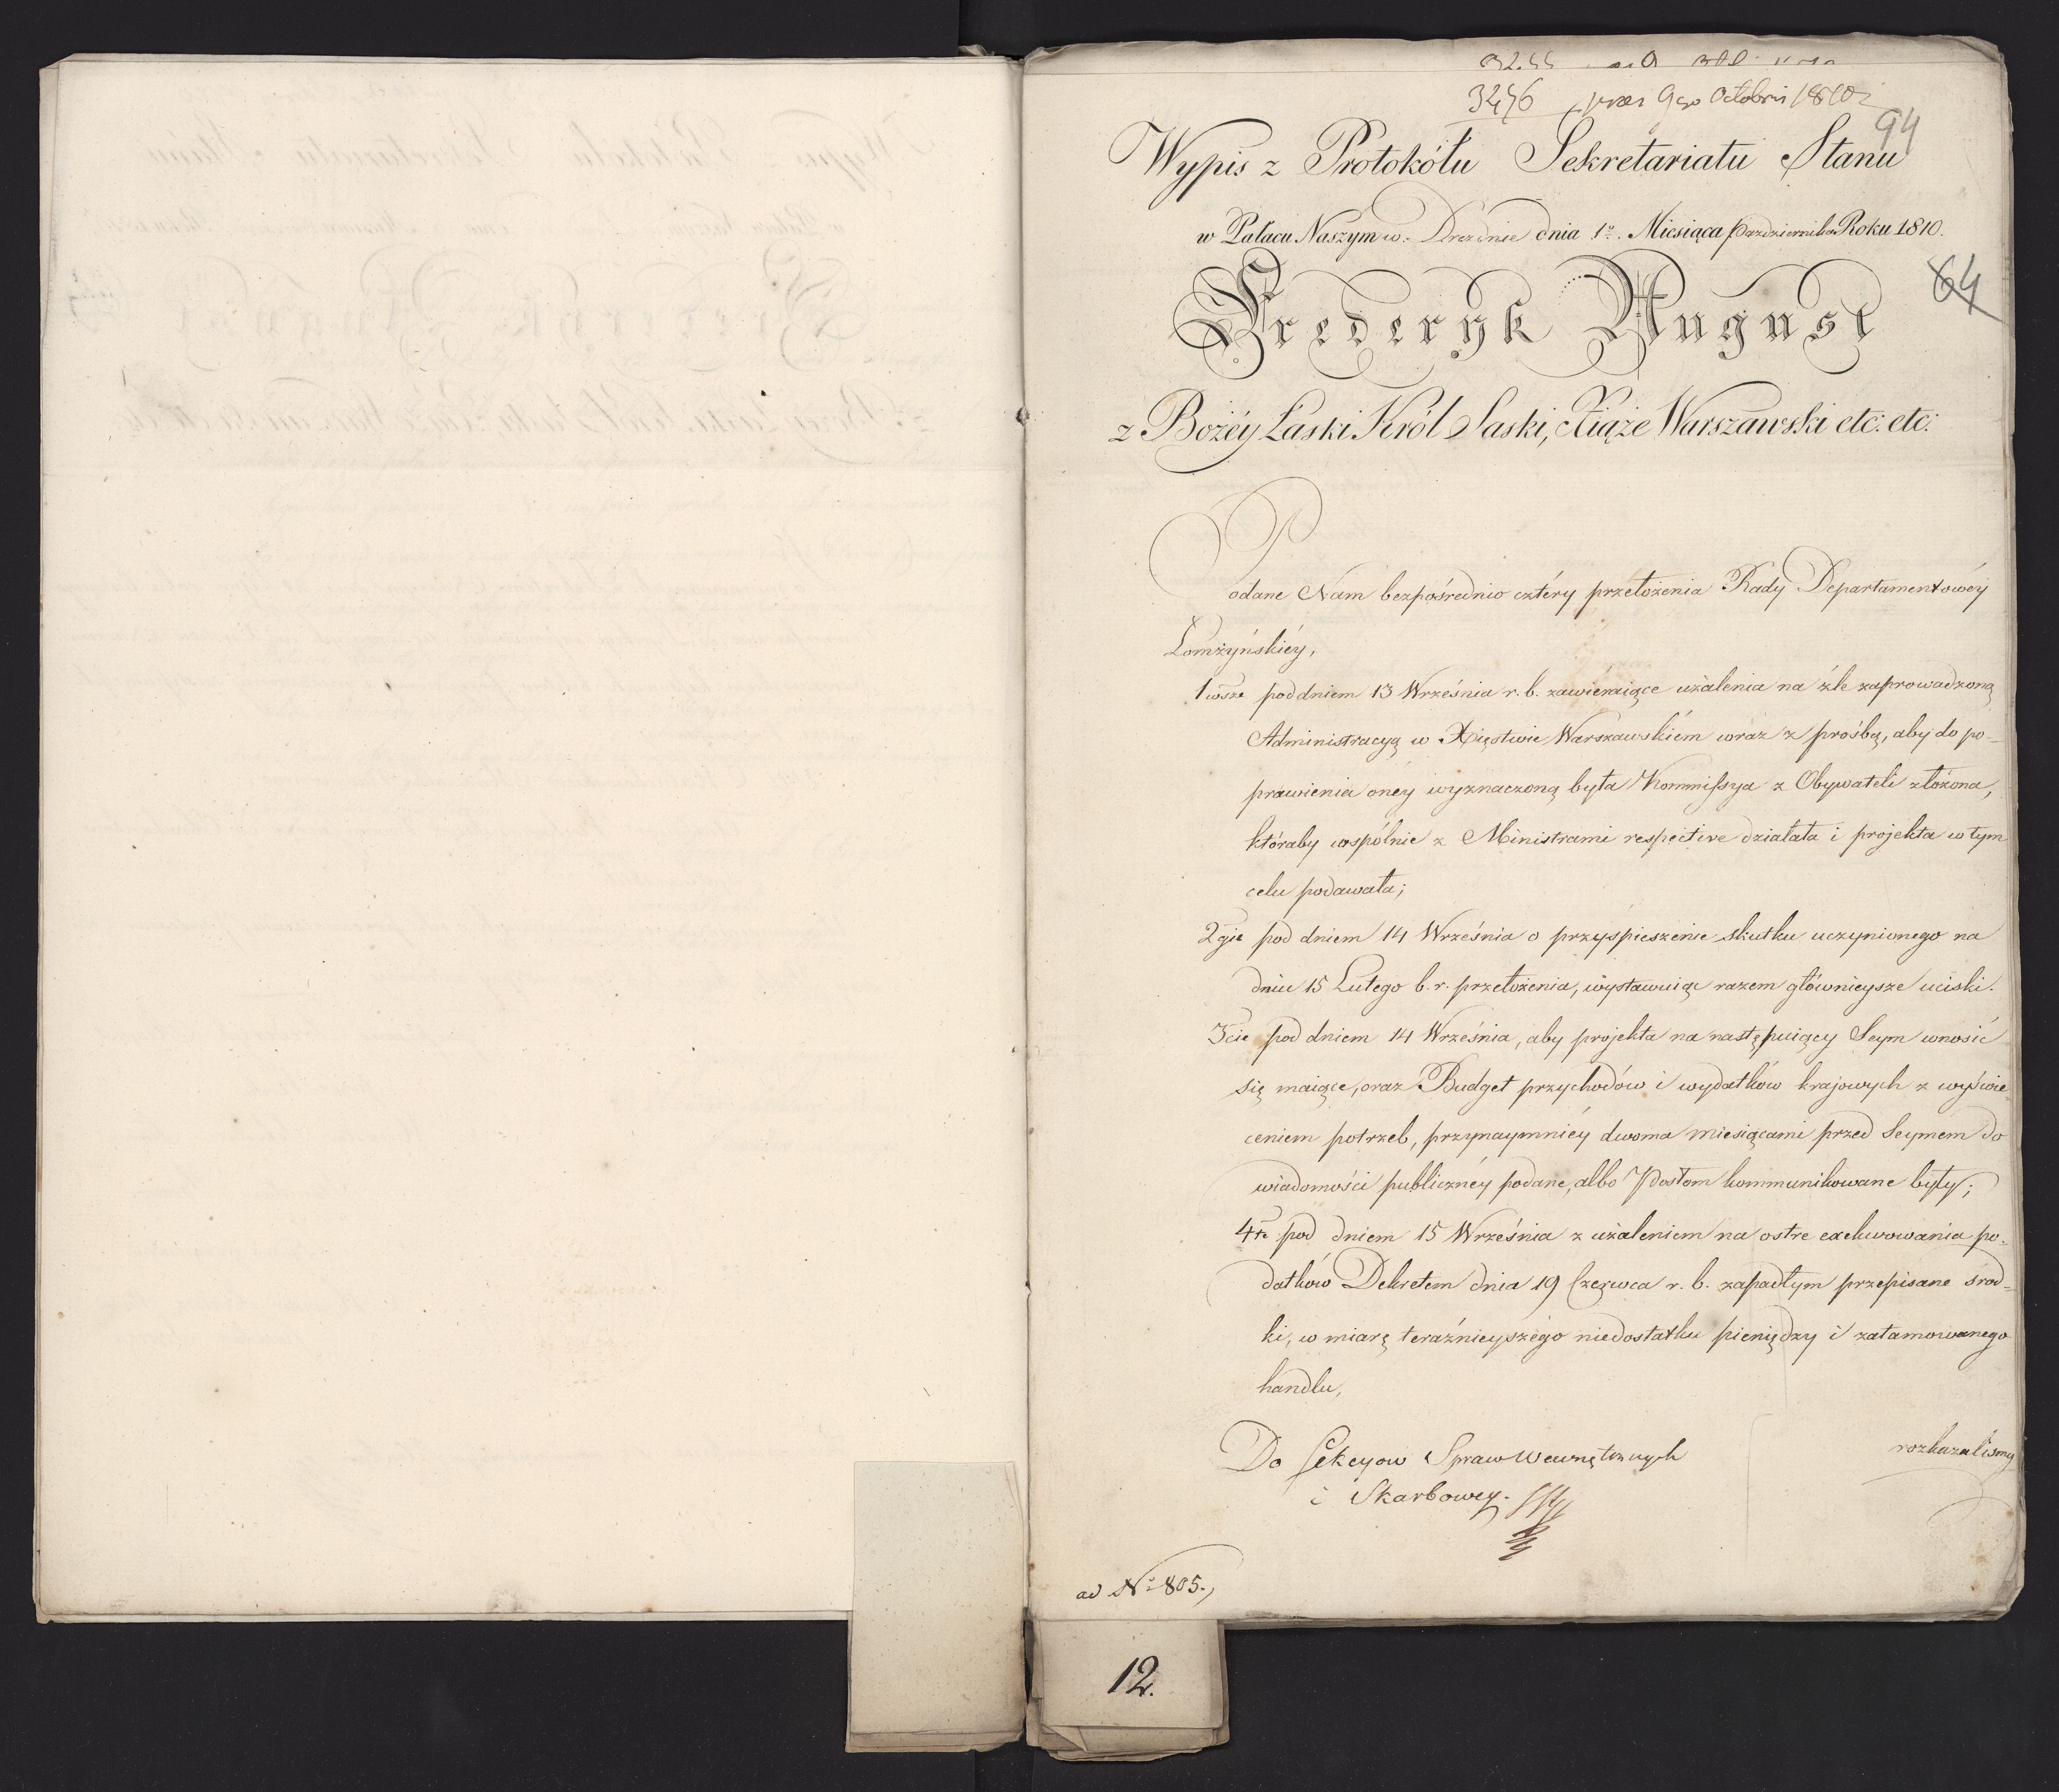 3256 9go Octobris 1810
94
Wypis z Protokółu Sekretariatu Stanu
w Pałacu Naszym w Dreźnie dnia 1o. Miesiąca Października Roku 1810.
64
Fryderyk August
z Bożéy Łaski Król Saski, Xiąże Warszawski etc: etc:
Podane Nam bezpośrednio cztéry przełożenia Rady Departamentowéy
Łomżyńskiéy,
1wsze pod dniem 13 Września r. b. zawiéraiące użalenia na źle zaprowadzoną
Administracyą w Xięstwie Warszawskiém wraz z prośbą, aby do po-
prawienia onéy wyznaczoną była Kommissya z Obywateli złożona,
któraby wspólnie z Ministrami respective działała i projekta w tym
celu podawała;
2gie pod dniem 14 Września o przyspieszenie skutku uczynionego na
dniu 15 Lutego b. r. przełożenia, wystawuiąc razem głównieysze uciski.
3cie pod dniem 14 Września, aby projekta na następuiący Seym wnosić
się maiące, oraz Budget przychodów i wydatków krajowych z wyświe-
ceniem potrzeb, przynaymniéy dwoma miesiącami przed Seymem do
wiadomości publicznéy podane, albo Posłom kommunikowane były;
4te pod dniem 15 Września z użaleniem na ostre exekwowania po-
datków Dekretem dnia 19 Czerwca r. b. zapadłym przepisane środ-
ki, w miarę teraźnieyszégo niedostatku pieniędzy i zatamowanego
handlu,
rozkazaliśmy
Do Sekcyow Spraw Wewnętrznych
i Skarbowey.
ad No 805.
12.